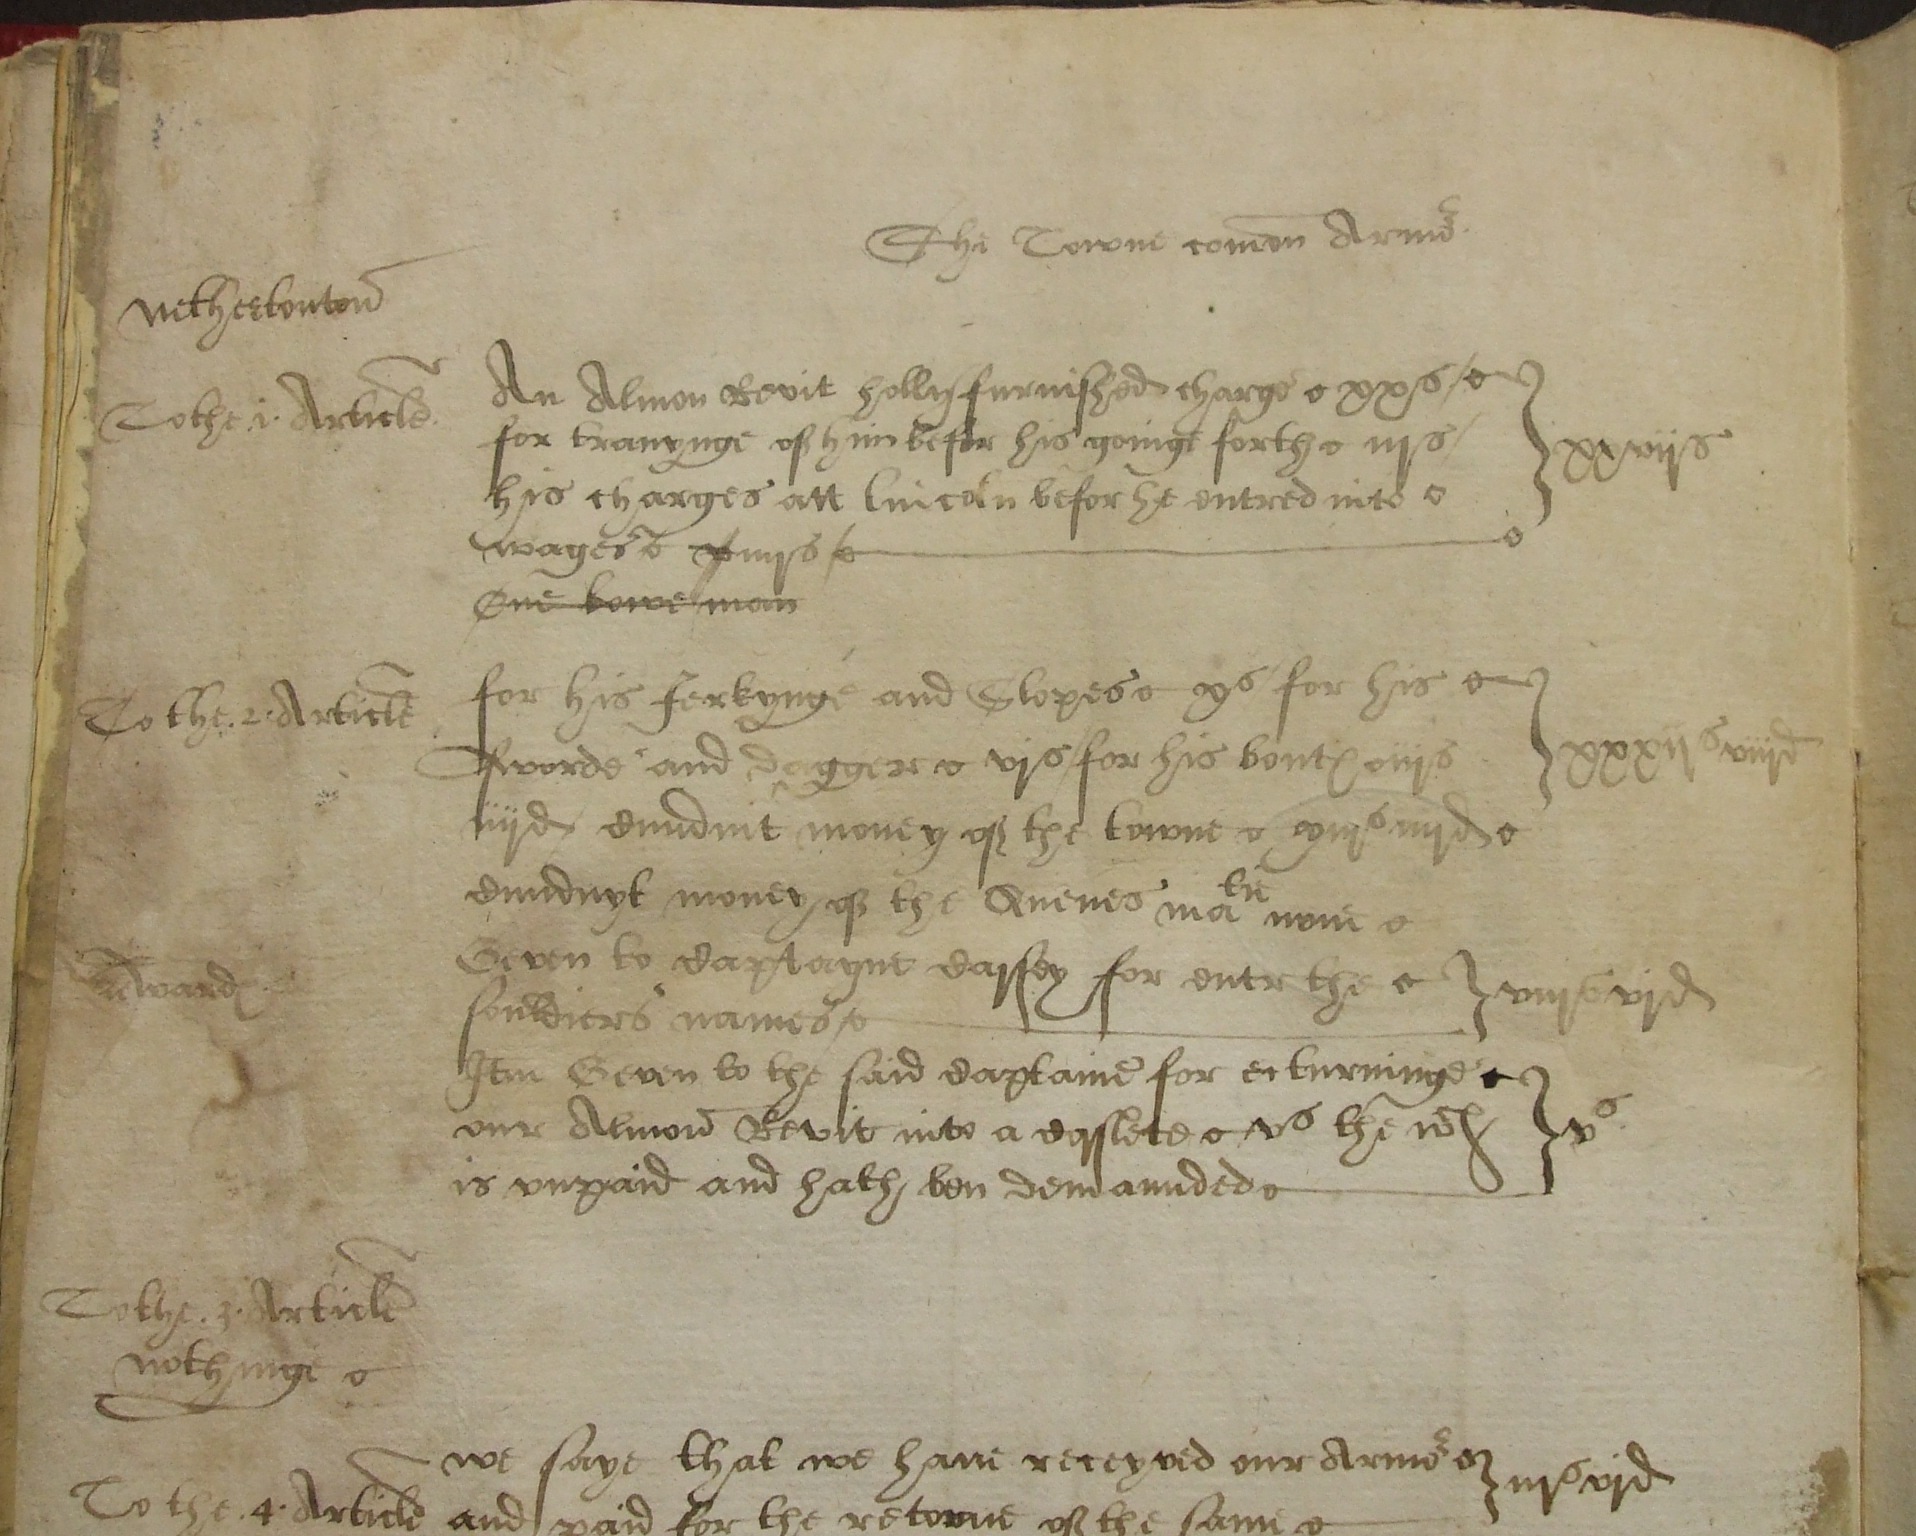 The Towne comon Armor
Netherlouton
To the .1. Article
An Almon Revit holly furnished charge xxs /
for tranynge of him befor his goinge forth iijs /
his charges att Lincoln befor he entred into
wages iiijs /
xxvijs
One bowe man
To the .2. Article
for his Jerkynge and Slopes xs for his
sworde and dagger vjs / for his
iiijd / money of the towne xiijs iiijd
xxxijs viijd
money of the Quenes matie none
Reward
Geven to Captayne for entr the
souldiers names /
viijs vjd
Itm Geven to the said Captaine for returninge
our Almon Revit into a Corslete vs the
is unpaid and hath ben demaunded
vs
To the .3. Article
nothinge
To the .4. Article
we saye that we have receyved our Armor
and paid for the retorne of the same
iijs vjd